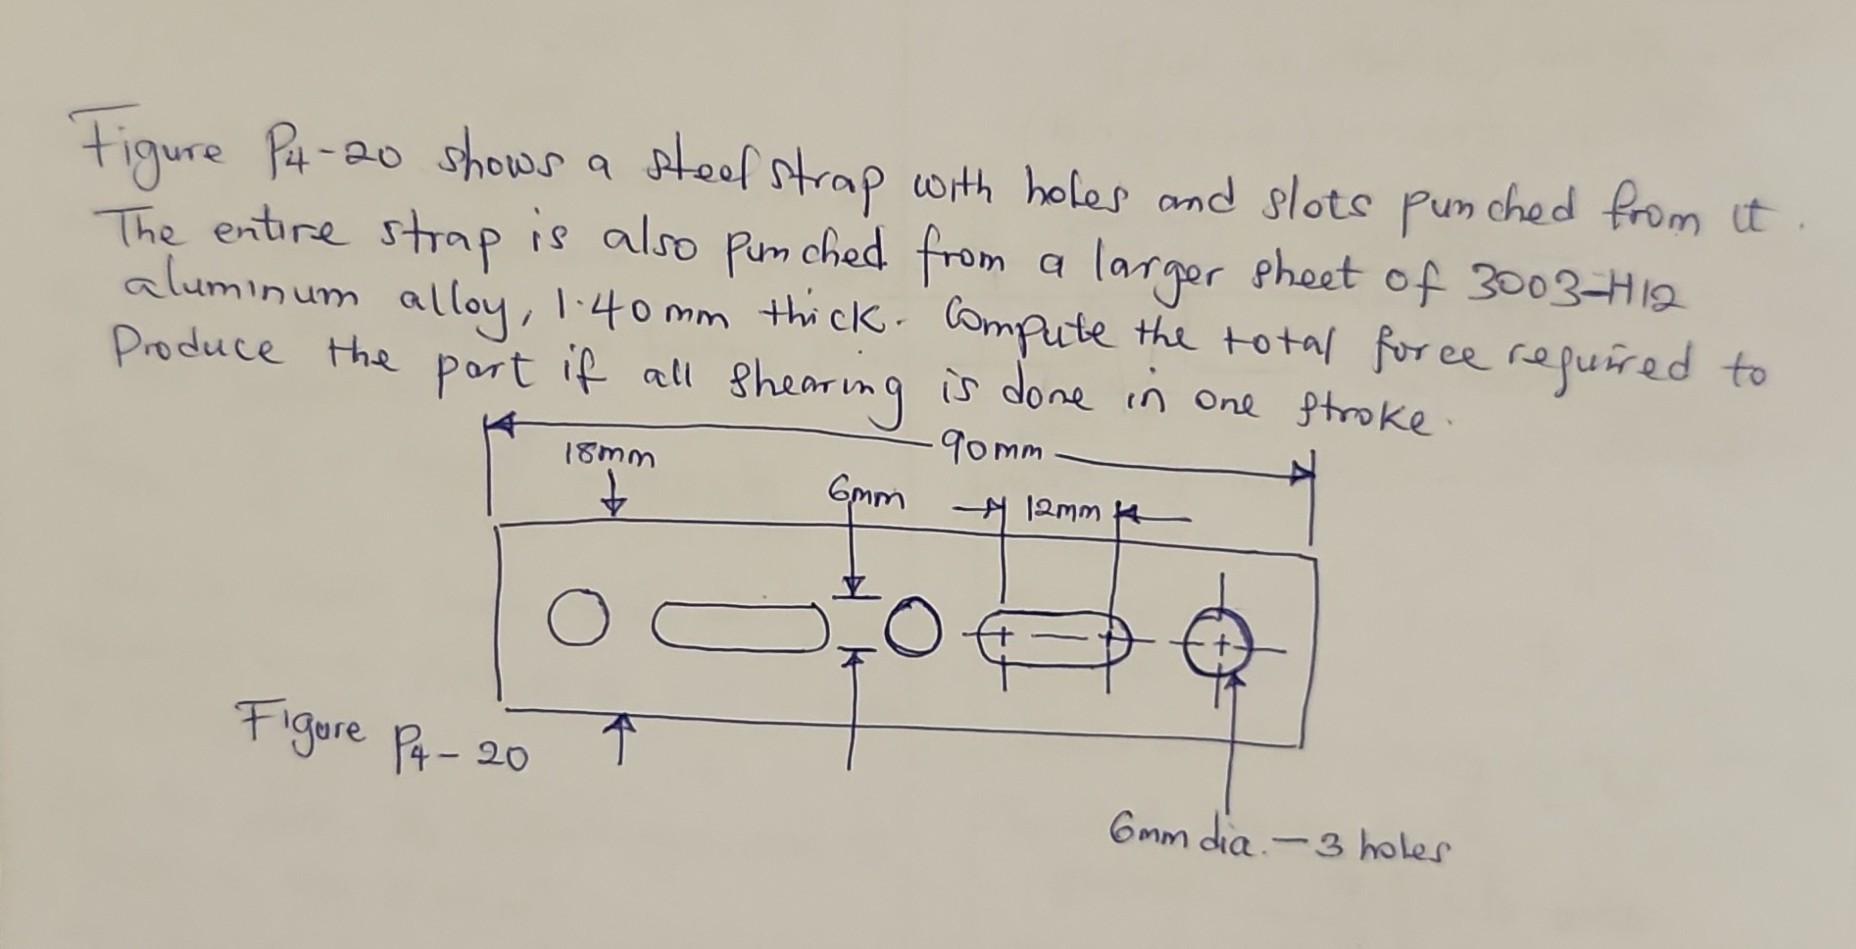 Figure P4-20 shows a steel strap with holes and slots punched from it.
The entire strap is also punched from a larger sheet of 3003-H12
aluminum alloy, 1.40mm thick. Compute the total force required to
Produce the part if all shearing is done in one stroke.
90mm
18mm
6mm
12mm
Figure P4-20
6mm dia. - 3 holes